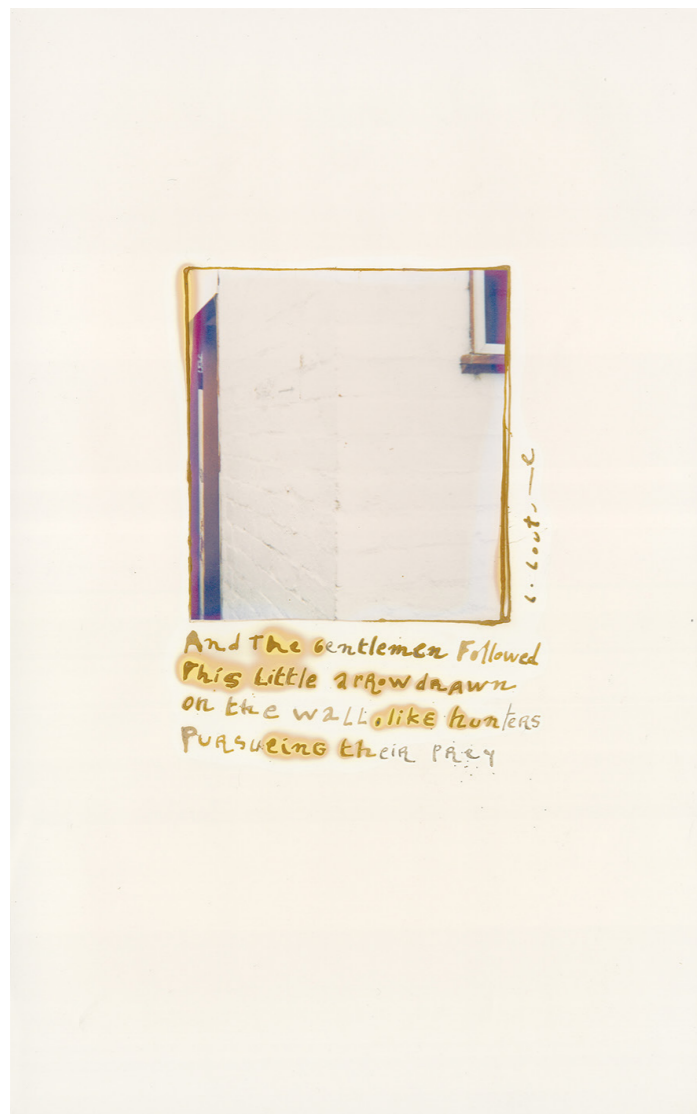 And The Gentlemen Followed
This Little arrow drawn
on the wall, like hunters
Pursueing their prey